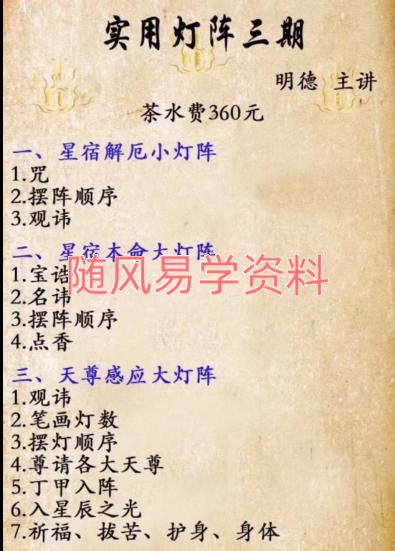 实用灯阵三期
明德 主讲
茶水费360元
一、星宿解厄小灯阵
1.咒
2.摆阵顺序
3.观讳
二、星宿本命大灯阵
1.宝诰
随风易学资料
2.名讳
3.摆阵顺序
4.点香
三、天尊感应大灯阵
1.观讳
2.笔画灯数
3.摆灯顺序
4.尊请各大天尊
5.丁甲入阵
6.入星辰之光
7.祈福、拔苦、护身、身体